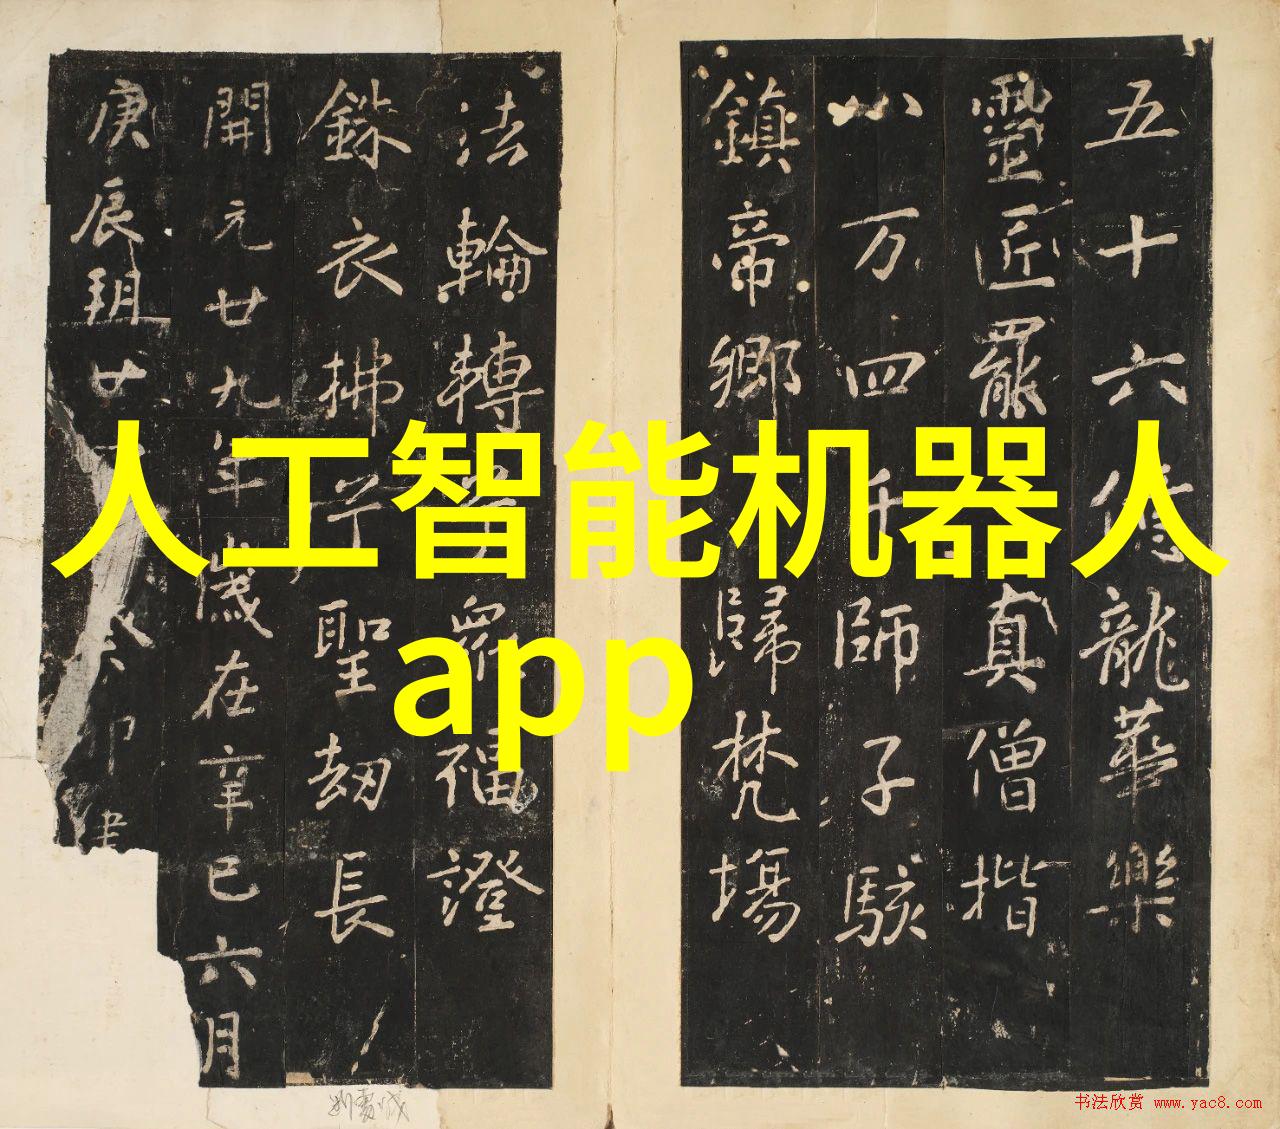 人工智能机器人
app
五十六億龍華樂
靈匠罷真僧揩
八万四千師子駭
鎮帝鄉歸梵場
法輪轉眾福證
銖衣拂兮聖劫長
開元廿九年歲在辛巳六月
庚辰朔廿癸卯建
书法欣赏 www.yac8.com